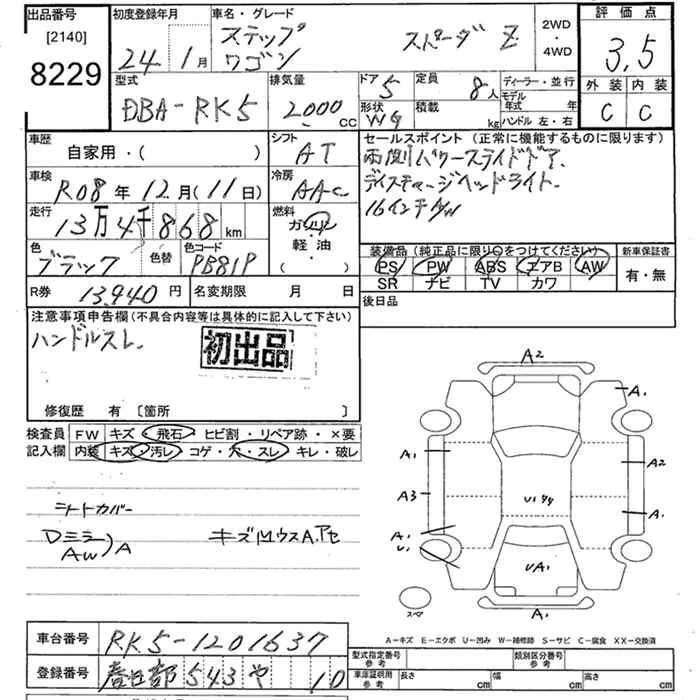 出品番号
[2140]
8229
初度登録年月
24年1月
車名・グレード
ステップ
ワゴン
スパーダ Z
2WD
・
4WD
評価点
3,5
外装 内装
C C
型式
DBA-RK5
排気量
2000 CC
ドア 5
形状 WG
定員 8人
積載 kg
ディーラー・並行
モデル年式 年
ハンドル 左・右
車歴
自家用・( )
シフト
AT
車検
R08年12月(11日)
冷房
AAC
走行
13万4千868km
燃料
ガソリン
軽油
( )
色
ブラック
色替
色コード
PB81P
R券 13,940円
名変期限 月 日
セールスポイント(正常に機能するものに限ります)
両側パワースライドドア.
ディスチャージヘッドライト.
16インチAW
装備品(純正品に限り○をつけてください)
PS PW ABS エアB AW
SR ナビ TV カワ
新車保証書
有・無
後日品
注意事項申告欄(不具合内容等は具体的に記入して下さい)
ハンドルスレ.
初出品
修復歴 有 [箇所 ]
検査員
記入欄
FW キズ・飛石・ヒビ割・リペア跡・×要
内装 キズ・汚レ・コゲ・穴・スレ・キレ・破レ
シートカバー
Dミラー
AW)A
A2
A1
A1
A2
A3
A1
A1
U1
A1
スペア
A-キズ E-エクボ U-凹み W-補修跡 S-サビ C-腐食 XX-交換済
車台番号 RK5-1201637
登録番号 春日部 543 や 10
型式指定番号
参考
類別区分番号
参考
車庫証明用
参考
長さ cm 幅 cm 高さ cm